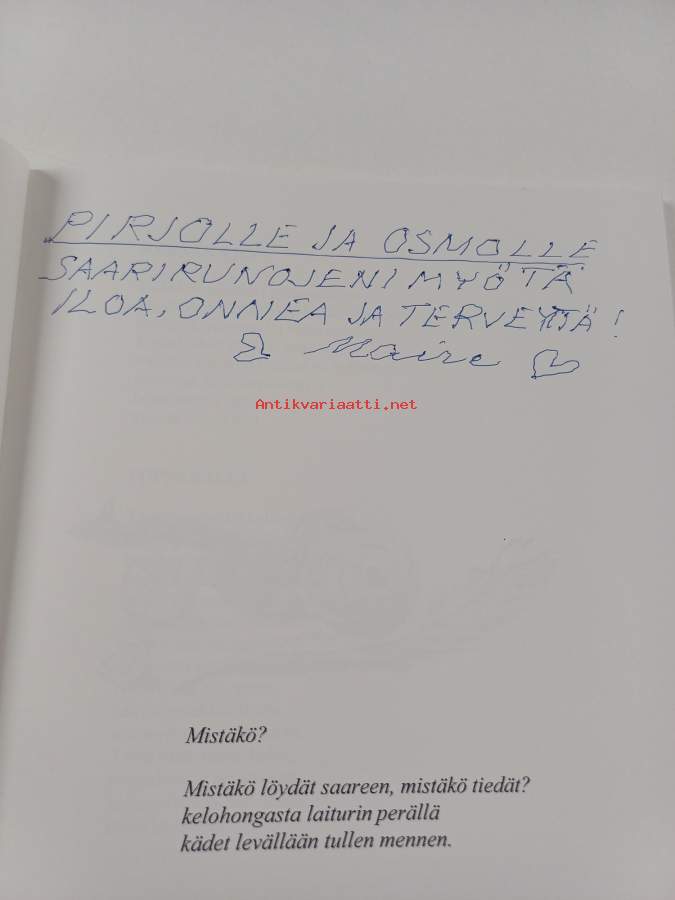 PIRJOLLE JA OSMOLLE
SAARIRUNOJENI MYÖTÄ
ILOA, ONNEA JA TERVEYTTÄ!
Maire
Antikvariaatti.net
Mistäkö?
Mistäkö löydät saareen, mistäkö tiedät?
kelohongasta laiturin perällä
kädet levällään tullen mennen.